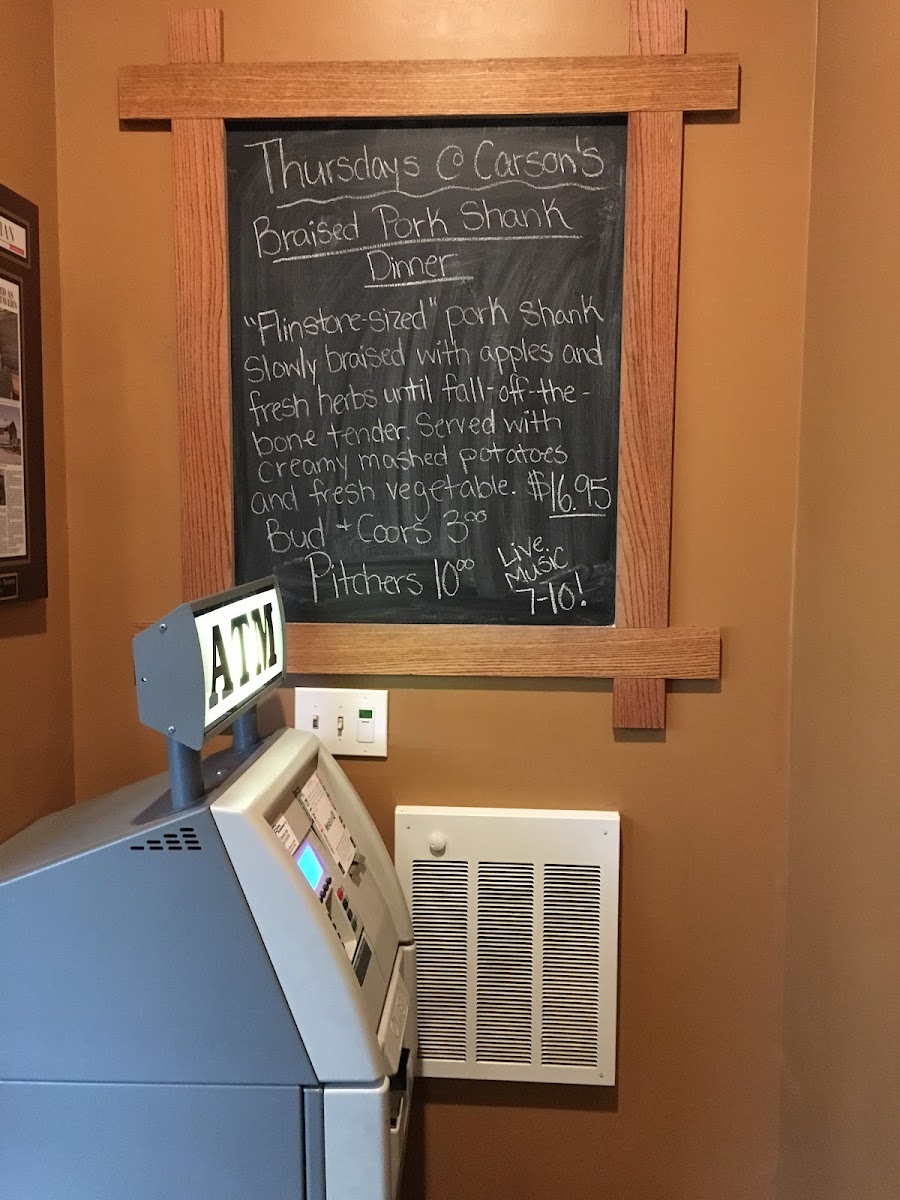 Thursdays @ Carson's
Braised Pork Shank
Dinner
"Flinstone-sized" pork shank
slowly braised with apples and
fresh herbs until fall-off-the-
bone tender. Served with
creamy mashed potatoes
and fresh vegetable. $16.95
Bud + Coors 3.00
Pitchers 10.00
Live
Music
7-10!
ATM